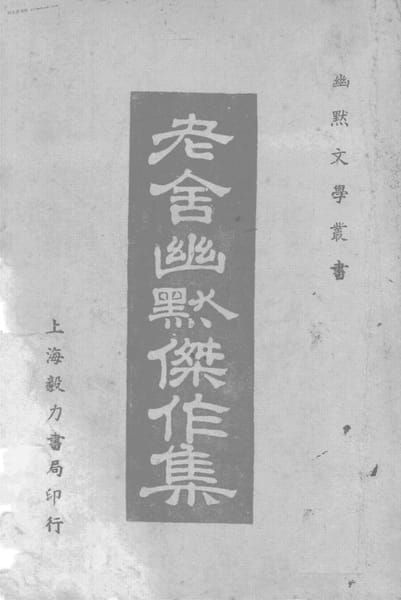 幽默文學叢書
老舍幽默傑作集
上海毅力書局印行